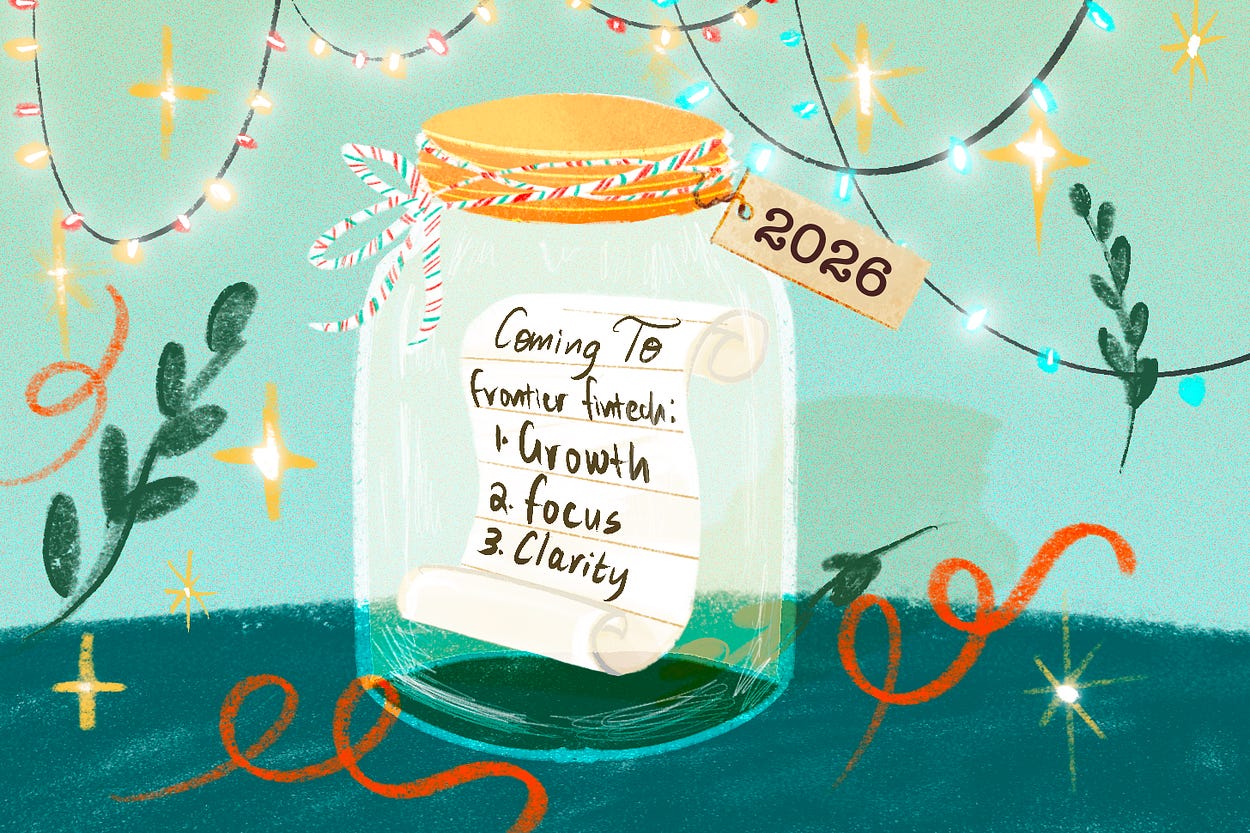 2026
Coming To
frontier fintech:
1. Growth
2. focus
3. Clarity